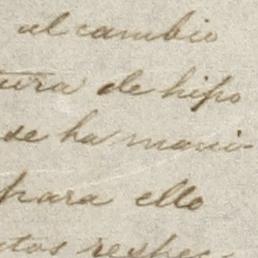 al cambio
tura de hipo
se ha mani-
para ello
ntos respec-